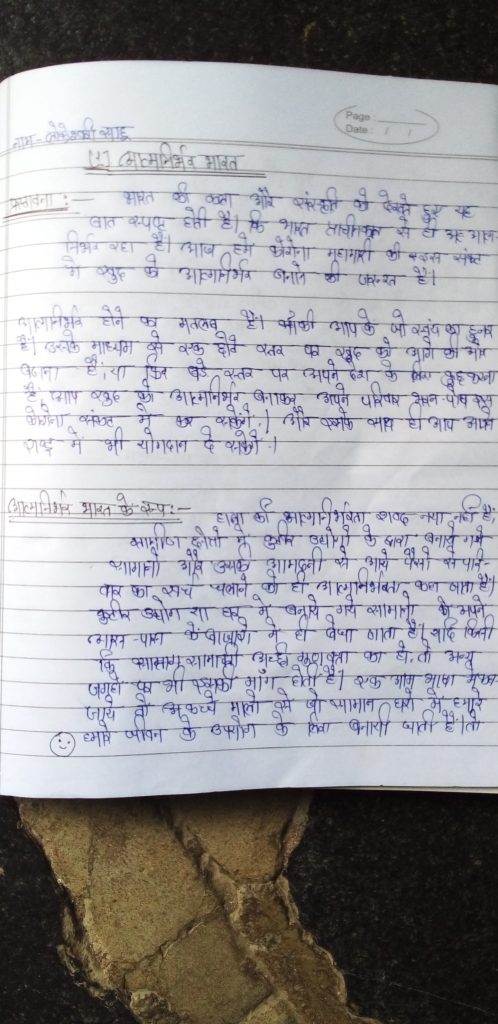 Page
Date : / /
नाम - लोकेश्वरी साहू
[1] आत्मनिर्भर भारत
प्रस्तावना :- भारत की कला और संस्कृति को देखते हुए यह
बात स्पष्ट होती है। कि भारत प्राचीनकाल से ही आत्म
निर्भर रहा है। आज हमे कोरोना महामारी की इस संकट
मे खुद को आत्मनिर्भर बनाने की जरूरत है।
आत्मनिर्भर होने का मतलब है। आपके जो स्वयं का हुनर
है। उसके माध्यम से एक छोटे स्तर पर खुद को आगे की ओर
बढाना है, या फिर बडे स्तर पर अपने देश के लिए कुछ करना
है, आप खुद को आत्मनिर्भर बनाकर अपने परिवार
कोरोना संकट मे कर सकेंगे।। और इसके साथ ही आप अपने
राष्ट्र मे भी योगदान दे सकेंगे।
आत्मनिर्भर भारत के रूप :- की आत्मनिर्भरता शब्द नया नहीं है,
ग्रामीण क्षेत्रो मे कुटीर उद्योगो के द्वारा बनाये गये
सामानो और उसकी आमदनी से आये पैसो से परि-
वार का खर्च चलाने को ही आत्मनिर्भरता कहा जाता है।
कुटीर उद्योग या घर मे बनाये गये सामानो को अपने
आस - पास के बाजारो मे ही बेचा जाता है। यदि किसी
कि अच्छी गुणवत्ता का हो, तो अन्य
जगहो पर भी इसकी मांग होती है। एक
जाये तो कच्चे मालो से जो सामान घरो मे हमारे
हमारे जीवन के उपयोग के लिए बनायी जाती है। तो